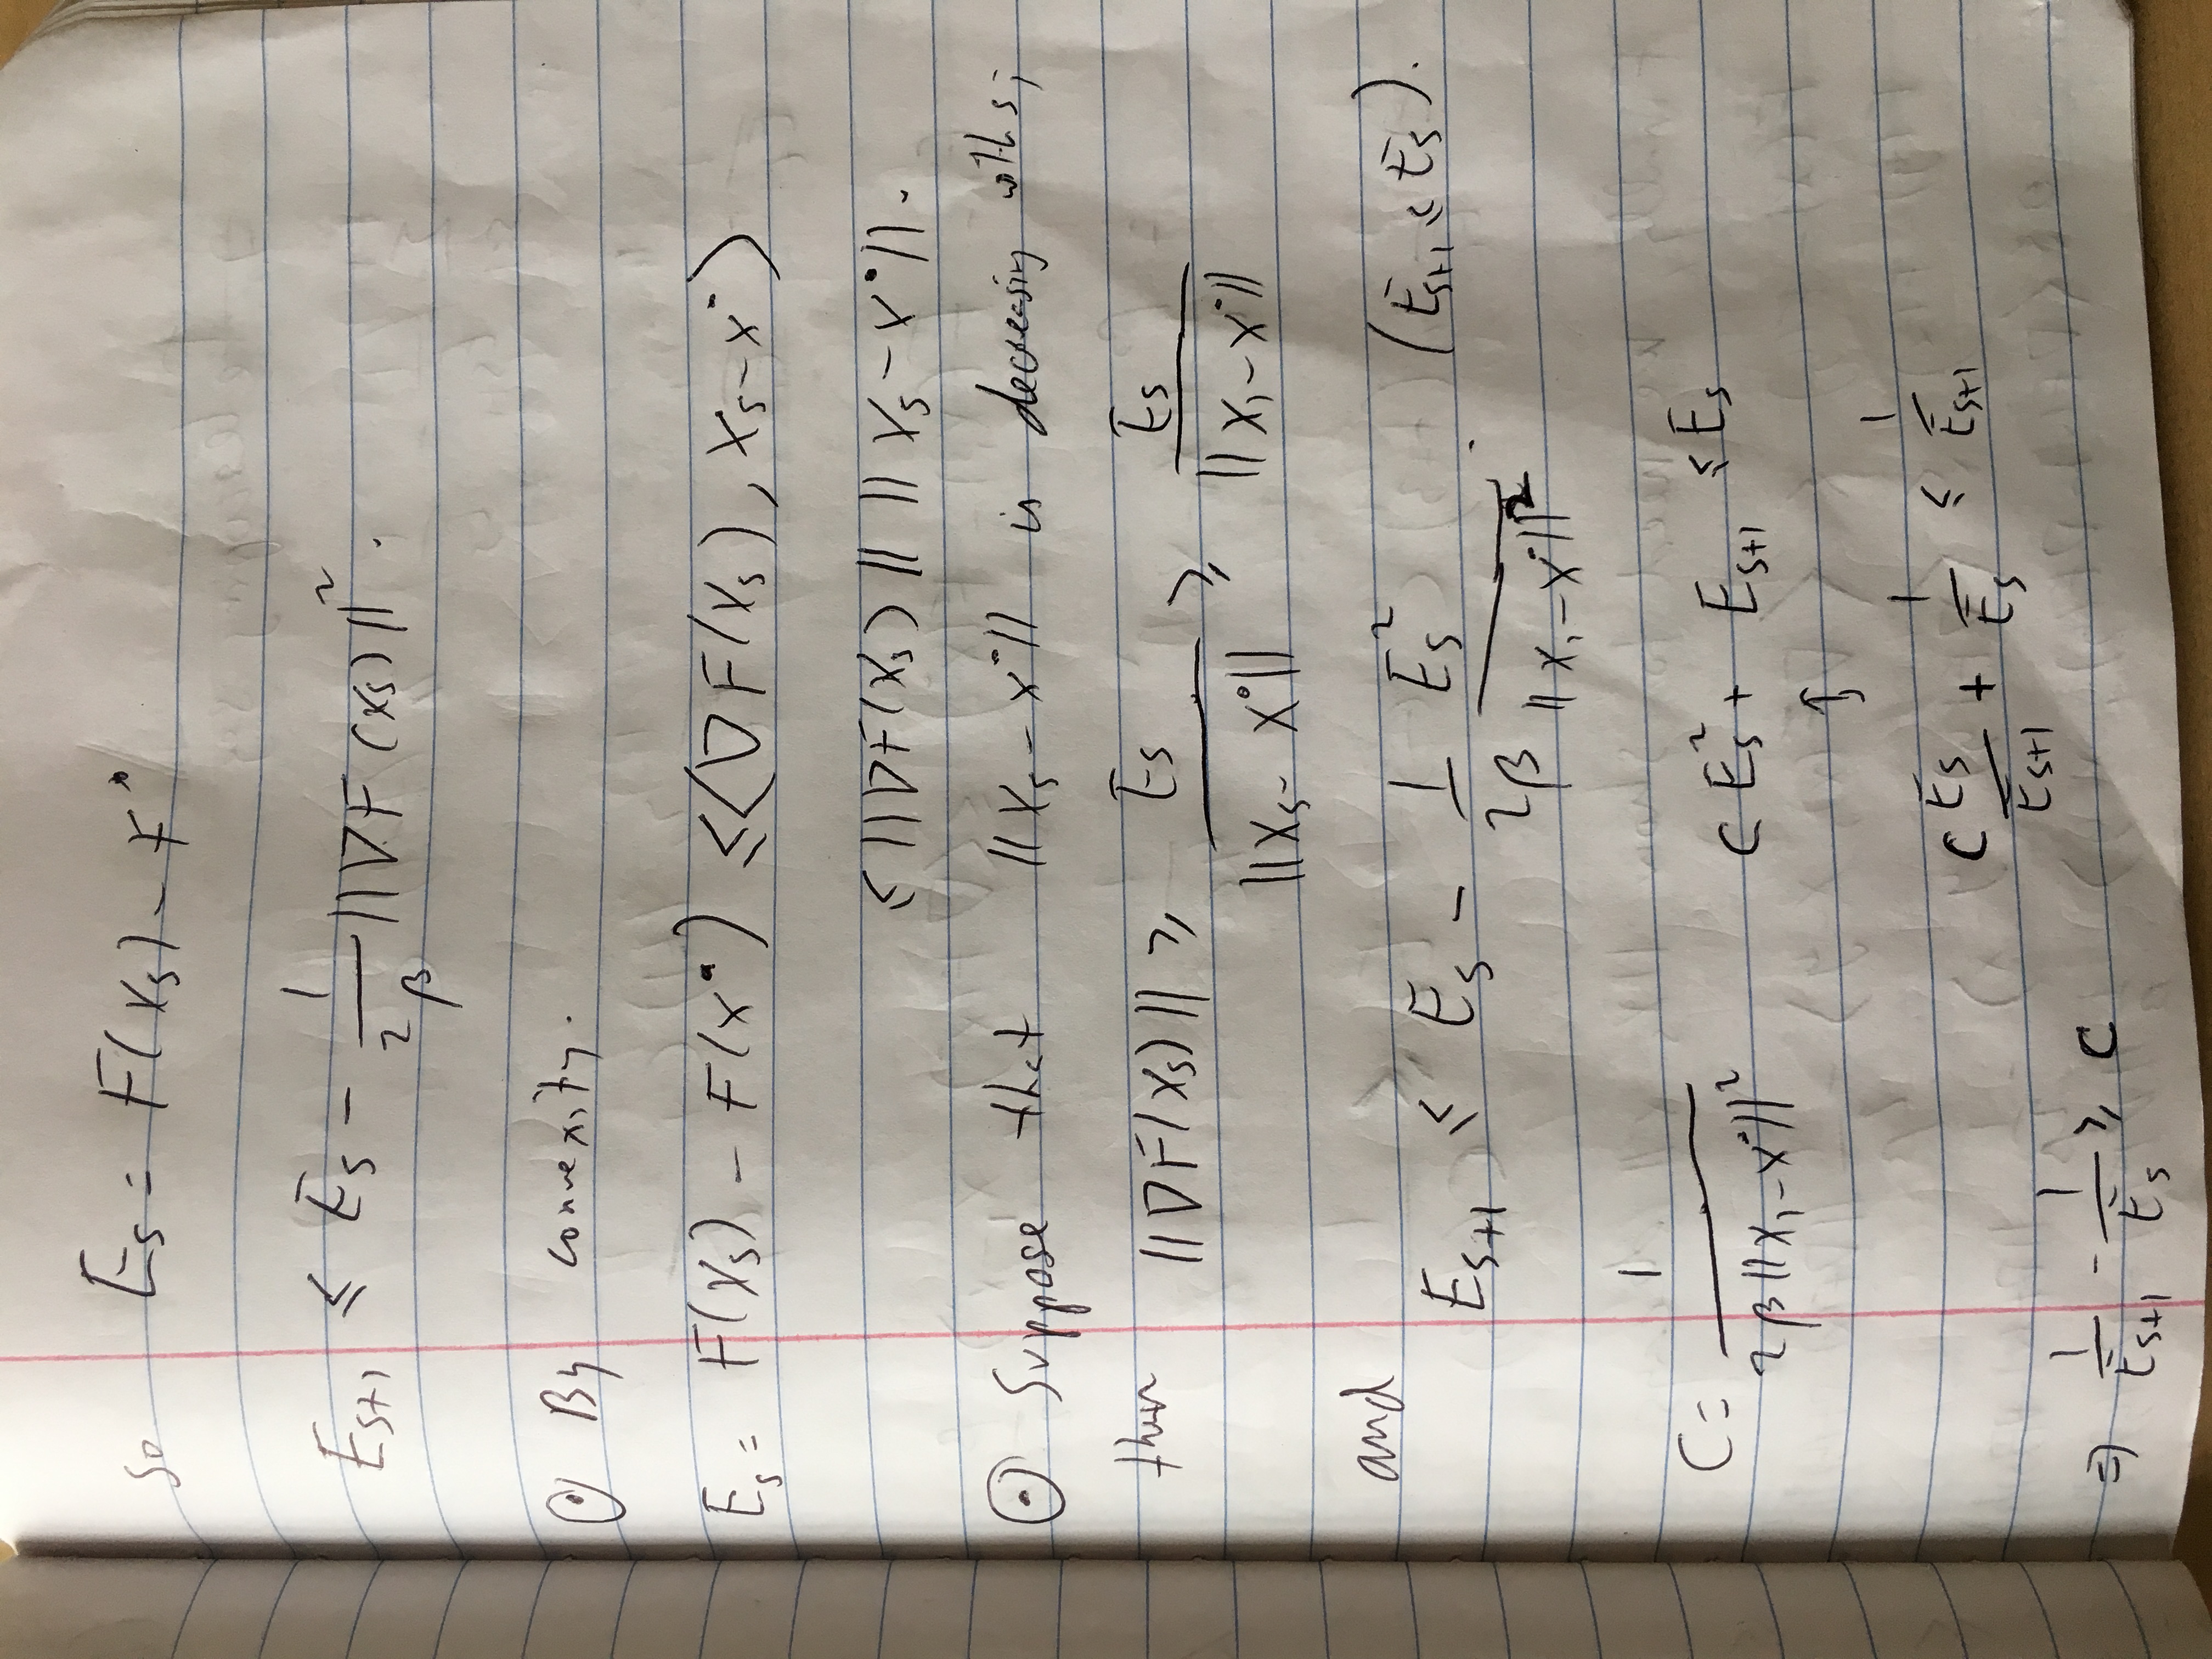 so E_s = F(x_s) - F*
E_{s+1} ≤ E_s - 1/(2β) ||∇F(x_s)||².
⊙ By convexity.
E_s = F(x_s) - F(x*) ≤ ⟨∇F(x_s), x_s - x*⟩
≤ ||∇F(x_s)|| ||x_s - x*||.
⊙ Suppose that ||x_s - x*|| is decreasing with s;
then ||∇F(x_s)|| ≥ E_s/||x_s - x*|| ≥ E_s/||x_1 - x*||
and
E_{s+1} ≤ E_s - 1/(2β) E_s²/||x_1 - x*||². (E_{s+1} ≤ E_s).
C = 1/(2β||x_1 - x*||²) C E_s² + E_{s+1} ≤ E_s
↕
C E_s/E_{s+1} + 1/E_s ≤ 1/E_{s+1}
⇒ 1/E_{s+1} - 1/E_s ≥ C